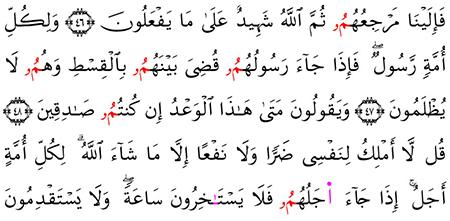 فَإِلَيْنَا مَرْجِعُهُمُۥ ثُمَّ اَ۬للَّهُ شَهِيدٌ عَلَىٰ مَا يَفْعَلُونَ ۝٤٦ وَلِكُلِّ
أُمَّةٍ رَسُولٌۖ فَإِذَا جَآءَ رَسُولُهُمُۥ قُضِيَ بَيْنَهُمُۥ بِالْقِسْطِ وَهُمُۥ لَا
يُظْلَمُونَ ۝٤٧ وَيَقُولُونَ مَتَىٰ هَـٰذَا اَ۬لْوَعْدُ إِن كُنتُمُۥ صَـٰدِقِينَ ۝٤٨
قُل لَّا أَمْلِكُ لِنَفْسِي ضَرًّا وَلَا نَفْعًا إِلَّا مَا شَآءَ اَ۬للَّهُۗ لِكُلِّ أُمَّةٍ
أَجَلٌۚ إِذَا جَآءَ اَ۬جَلُهُمُۥ فَلَا يَسْتَـٰخِرُونَ سَاعَةًۖ وَلَا يَسْتَقْدِمُونَ